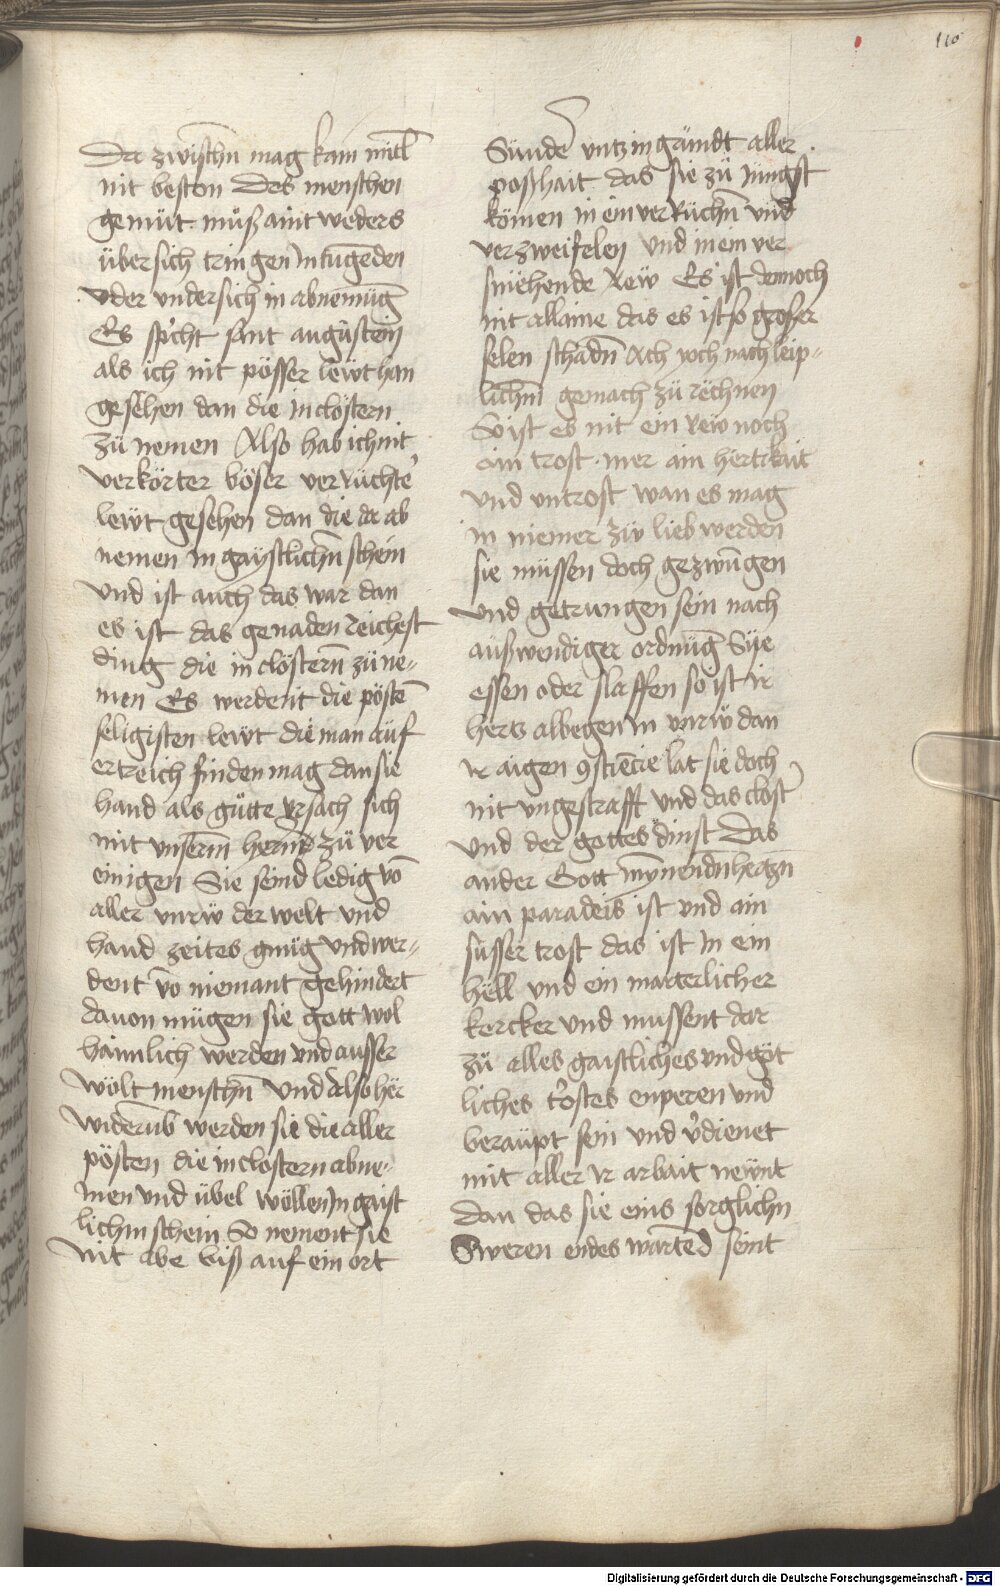 110
Da zwischn mag kam mitl
nit beston Des menschen
gemüt müß aint weders
übersich tringen In tugēden
oder vndersich in abnemūg
Es spicht sant augüstein
als ich nit pösser lewt han
gesehen dan die In clöstern
zü nemen Also hab ich nit
verkörter böser verrüchte
lewt gesehen dan die da ab
nemen In gaystlichn schein
vnd ist auch das war dan
es ist das genaden reichest
ding die in clöstern zü ne-
men Es werdent die pöstē
seligisten lewt die man auf
ertreich finden mag dan sie
hand als gütte vrsach sich
mit vnserm hern zü ver
einigen Sie seind ledig vō
aller vnrw der welt vnd
hand zeites gnüg vnd wer-
dent vō niemant gehindert
dauon mügen sie gott wol
haimlich werden vnd ausser
wölt menschn vnd Also her
widerūb werden sie die aller
pösten die in clostern abne-
men vnd übel wöllen In gaist
lichm schein So nement sie
nit abe biß auf ein ort
Sünde vntz in gründt aller
poßhait das sie zü jüngst
kömen in ein verrüchn vnd
verzweifelen vnd in ein ver
smehende rew Es ist dennoch
nit allaine das es ist so grosser
selen schadn Ach joch nach leip-
lichm gemach zü rechnen
So ist es nit ein rew noch
ain trost mer ain hertikait
vnd vntrost wan es mag
in niemer zw lieb werden
sie müssen doch gezwūgen
vnd getrungen sein nach
außwendiger ordnūg Sye
essen oder slaffen so ist ir
hertz albegen in vnrw dan
ir aigen 9sciēcie lat sie doch
nit vngestrafft vnd das clost
vnd der gottes dinst Das
ander Gott mynendn hertzn
ain paradeis ist vnd ain
süsser trost das ist In ein
hell vnd ein marterlicher
kercker vnd mussent dar
zü alles gaistliches vnd göt
liches trostes enperen vnd
beraüpt sein vnd vdienet
mit aller ir arbait newnt
dan das sie eins sorglichn
Sweren endes wartēd seint
Digitalisierung gefördert durch die Deutsche Forschungsgemeinschaft - DFG